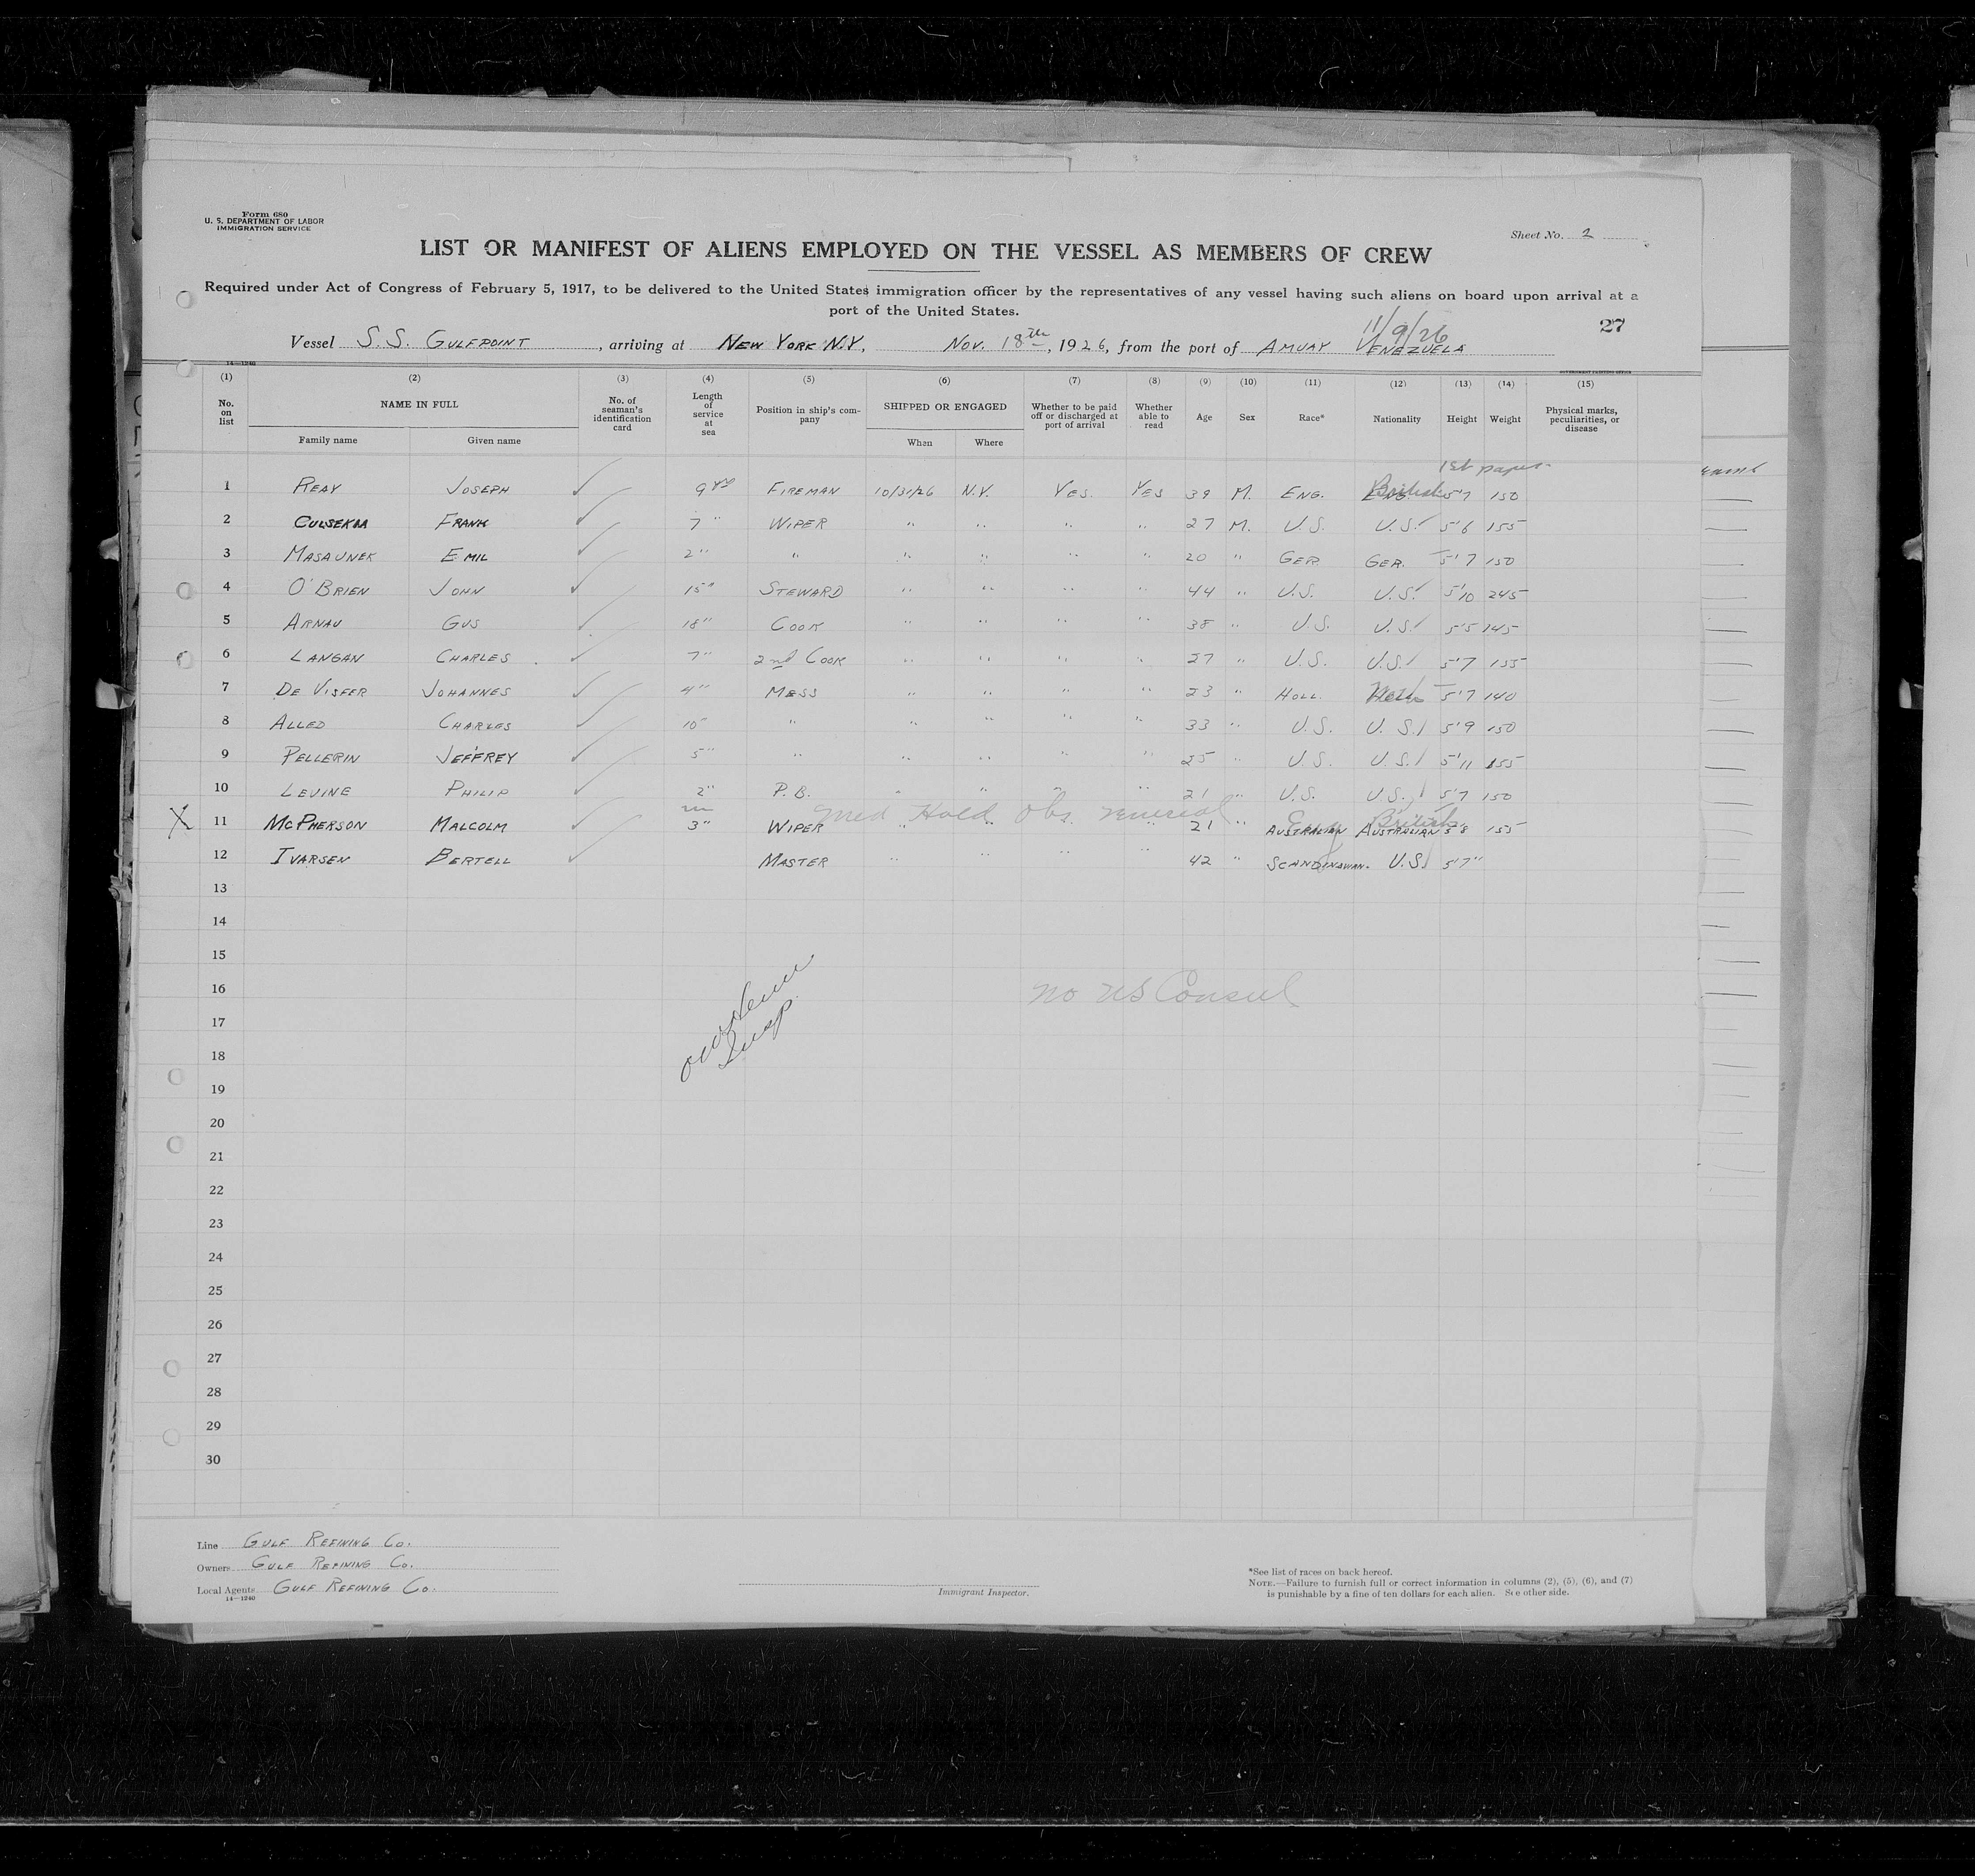 Form 680
U. S. DEPARTMENT OF LABOR
IMMIGRATION SERVICE
Sheet No. 2
LIST OR MANIFEST OF ALIENS EMPLOYED ON THE VESSEL AS MEMBERS OF CREW
Required under Act of Congress of February 5, 1917, to be delivered to the United States immigration officer by the representatives of any vessel having such aliens on board upon arrival at a
port of the United States.
27
11/9/26
Vessel S.S. GULFPOINT, arriving at NEW YORK N.Y., NOV. 18th, 1926, from the port of AMUAY VENEZUELA
14—1240 GOVERNMENT PRINTING OFFICE
(1) (2) (3) (4) (5) (6) (7) (8) (9) (10) (11) (12) (13) (14) (15)
No. on list NAME IN FULL No. of seaman's identification card Length of service at sea Position in ship's company SHIPPED OR ENGAGED Whether to be paid off or discharged at port of arrival Whether able to read Age Sex Race* Nationality Height Weight Physical marks, peculiarities, or disease
Family name Given name When Where
1st paper
1 REAY JOSEPH ✓ 9 yrs FIREMAN 10/31/26 N.Y. YES. YES 39 M. ENG. British 5'7 150
2 CULSEKAA FRANK ✓ 7 " WIPER " " " " 27 M. U.S. U.S. 5'6 155
3 MASAUNEK EMIL ✓ 2 " " " " " " 20 " GER GER. 5'7 150
4 O'BRIEN JOHN ✓ 15 " STEWARD " " " " 44 " U.S. U.S. 5'10 245
5 ARNAU GUS ✓ 18 " COOK " " " " 38 " U.S. U.S. 5'5 145
6 LANGAN CHARLES. ✓ 7 " 2nd COOK " " " " 27 " U.S. U.S. 5'7 155
7 DE VISFER JOHANNES ✓ 4 " MESS " " " " 23 " HOLL. 5'7 140
8 ALLED CHARLES ✓ 10 " " " " " " 33 " U.S. U.S. 5'9 150
9 PELLERIN JEFFREY ✓ 5 " " " " " " 25 " U.S. U.S. 5'11 155
10 LEVINE PHILIP ✓ 2 " P.B. " " " " 21 " U.S. U.S. 5'7 150
med Hold Obs. venereal British
X 11 McPHERSON MALCOLM ✓ 3 " WIPER " " " 21 " AUSTRALIAN AUSTRALIAN 5'8 155
12 IVARSEN BERTELL ✓ MASTER " " " " 42 " SCANDINAVIAN. U.S. 5'7"
13
14
15
16 no US Consul
17
Insp.
18
19
20
21
22
23
24
25
26
27
28
29
30
Line GULF REFINING CO.
Owners GULF REFINING CO.
Local Agents GULF REFINING CO.
14—1240
Immigrant Inspector.
*See list of races on back hereof.
NOTE.—Failure to furnish full or correct information in columns (2), (5), (6), and (7)
is punishable by a fine of ten dollars for each alien. See other side.